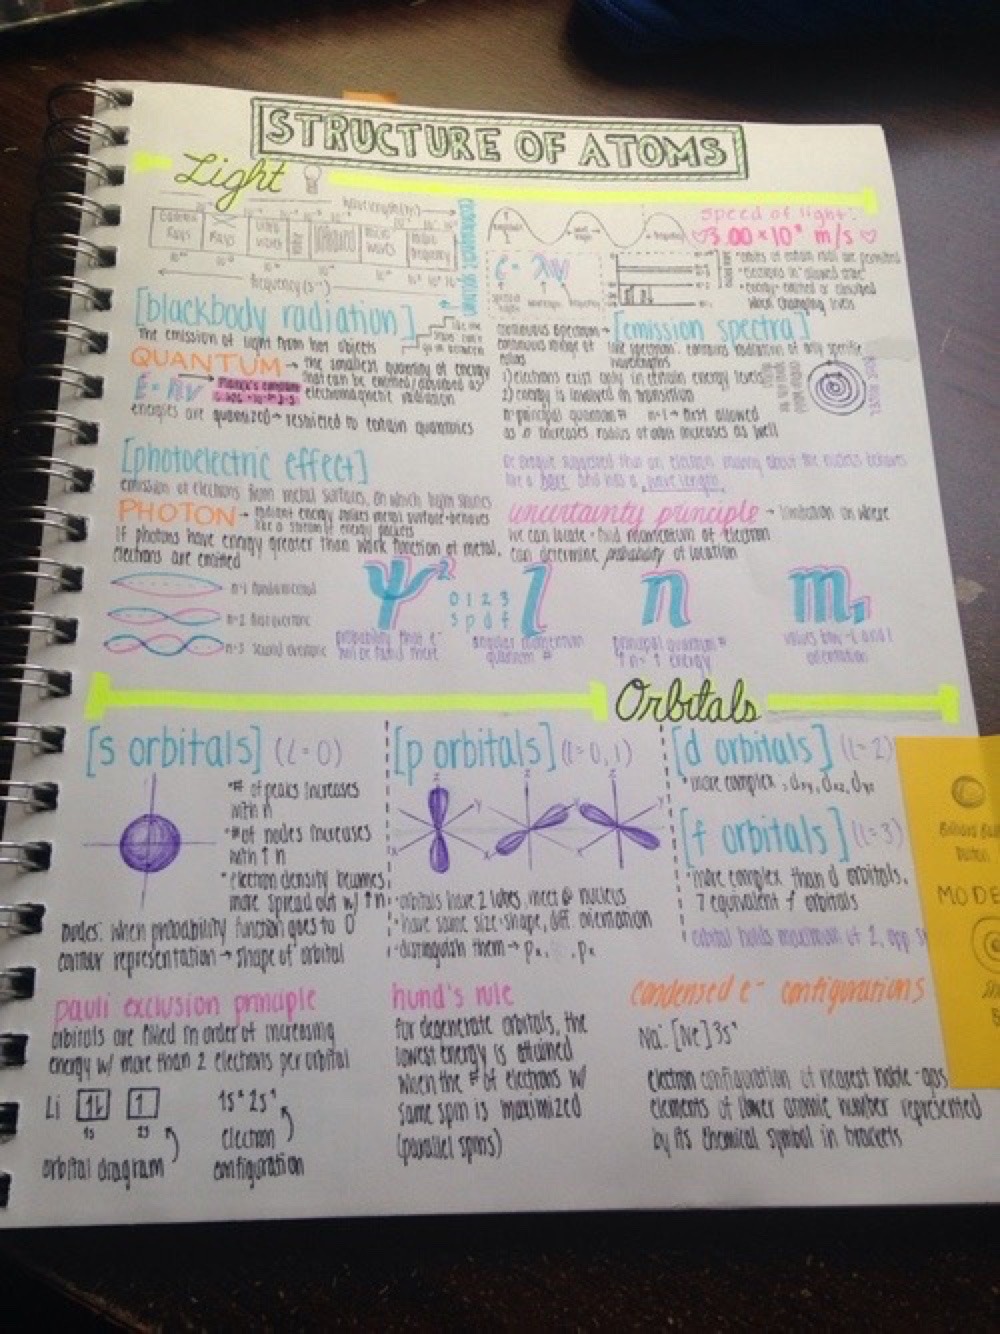 STRUCTURE OF ATOMS
Light
wavelength(m)
Gamma Rays
X Rays
ultra violet
Infrared
micro waves
radio frequency
frequency (s⁻¹)
electromagnetic spectrum
speed of light:
♡3.00 × 10⁸ m/s ♡
c = λν
speed of light
wavelength
frequency
electrons in allowed state
energy emitted or absorbed
when changing levels
[blackbody radiation]
the emission of light from hot objects
QUANTUM → the smallest quantity of energy
that can be emitted/absorbed as
electromagnetic radiation
E = hν
Planck's constant
energies are quantized → restricted to certain quantities
continuous spectrum →
continuous range of
colors
[emission spectra]
line spectrum: contains radiation of only specific
wavelengths
1) electrons exist only in certain energy levels
2) energy is involved in transition
n = principal quantum # n=1 → first allowed
as n increases radius of orbit increases as well
[photoelectric effect]
emission of electrons from metal surfaces, on which light shines
PHOTON → radiant energy strikes metal surface - behaves
like a stream of energy packets
If photons have energy greater than work function of metal,
electrons are emitted
De Broglie suggested that an electron moving about the nucleus behaves
like a wave and has a wavelength
uncertainty principle → limitation on where
we can locate + find momentum of electron
can determine probability of location
n=1 fundamental
n=2 first overtone
n=3 second overtone
ψ²
probability that e⁻
will be found there
0 1 2 3
s p d f
l
angular momentum
quantum #
n
principal quantum #
↑n = ↑ energy
mₗ
values btw -l and l
orientation
Orbitals
[s orbitals] (l=0)
• # of peaks increases
with n
• # of nodes increases
with ↑ n
• electron density becomes
more spread out w/ ↑n
nodes: when probability function goes to 0
contour representation → shape of orbital
[p orbitals] (l=0,1)
z
y
x
• orbitals have 2 lobes, meet @ nucleus
• have same size + shape, diff. orientation
• distinguish them →
[d orbitals] (l=2)
• more complex
[f orbitals] (l=3)
• more complex than d orbitals.
7 equivalent f orbitals
orbital holds maximum of 2, opp
pauli exclusion principle
orbitals are filled in order of increasing
energy w/ more than 2 electrons per orbital
Li
1s 2s
1s² 2s¹
orbital diagram
electron
configuration
hund's rule
for degenerate orbitals, the
lowest energy is attained
when the # of electrons w/
same spin is maximized
(parallel spins)
condensed e⁻ configurations
Na: [Ne]3s¹
electron configuration of nearest noble-gas
elements of lower atomic number represented
by its chemical symbol in brackets
MODE